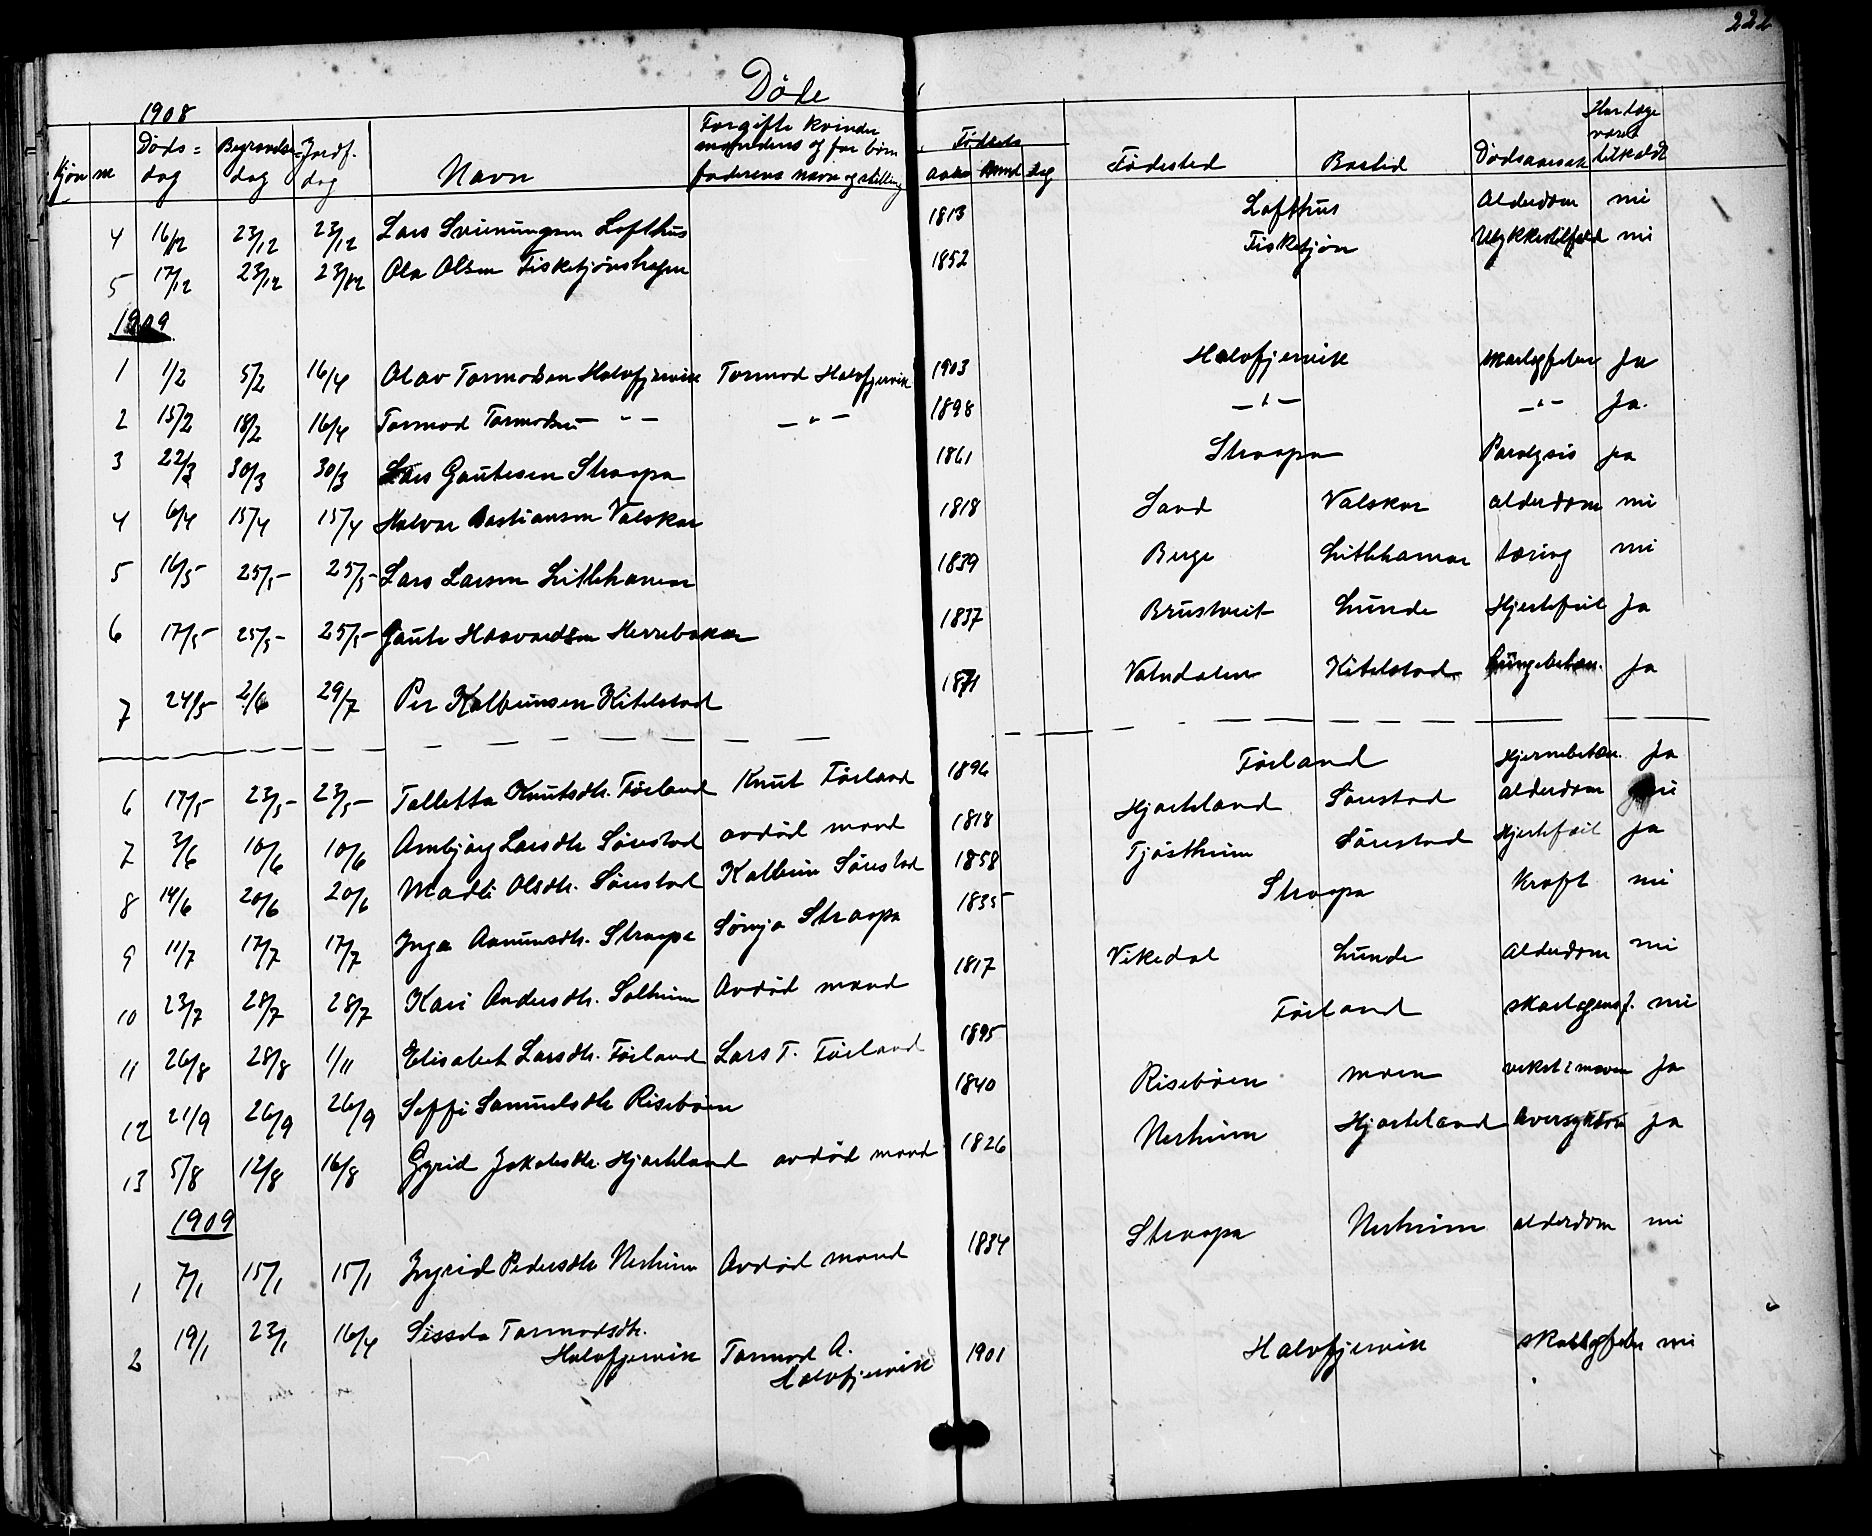 222
Døde
1908
Kjøn nr Døds= dag Begravelses= dag Jordf. dag Navn Forgifte kvinder mandens og for børn faderens navn og stilling Fødsels aar Maaned dag Fødested Bosted Dødsaarsak Har læge været tilkaldt
4 16/12 23/12 23/12 Lars Sveinungsen Lofthus 1813 Lofthus Alderdom nei
5 17/12 23/12 23/12 Ola Olsen Fisketjønshagen 1852 Fisketjøn Ulykkestilfeld nei
1909
1 1/2 5/2 16/4 Olav Tormodsen Halvfjervik Tormod Halvfjervik 1903 Halvfjervik Ja
2 15/2 18/2 16/4 Tormod Tormodsen — " — — " — 1898 — " — — " — Ja.
3 22/3 30/3 30/3 Lars Gautesen Straapa 1861 Straapa Paralysis ja
4 6/4 15/4 15/4 Halvor Bastiansen Valskar 1818 Sand Valskar alderdom nei
5 16/5 25/5 25/5 Lars Larsen Litlehamar 1839 Berge Litlehamar tæring nei
6 17/5 25/5 25/5 Gaute Haavardsen Herrebakar 1837 Brustveit Lunde Hjertefeil Ja
7 24/5 2/6 29/7 Per Kolbeinsen Kitelstad 1871 Vatndalen Kitelstad Lungebetæn. Ja
6 17/5 23/5 23/5 Talletta Knutsdtr. Førland Knut Førland 1896 Førland Hjernebetæn. Ja
7 3/6 10/6 10/6 Ambjørg Larsdtr Sørestad avdød mand 1818 Hjorteland Sørestad alderdom nei
8 14/6 20/6 20/6 Madli Olsdtr. Sørestad Kolbein Sørestad 1858 Tjøstheim Sørestad Hjertefeil Ja
9 11/7 17/7 17/7 Inga Aamundsdtr. Straapa Straapa 1835 Straapa Kræft nei
10 23/7 28/7 28/7 Kari Andersdtr. Solheim Avdød mand 1817 Vikedal Lunde Alderdom nei
11 26/8 28/8 1/11 Elisabet Larsdtr. Førland Lars T. Førland 1895 Førland nei
12 21/9 26/9 26/9 Seffi Samuelsdtr Risebøen 1840 Risebøen moen vekst i maven Ja
13 5/8 12/8 16/8 Gyrid Jakobsdtr. Hjorteland avdød mand 1826 Nerheim Hjorteland Ja
1909
1 7/1 15/1 15/1 Ingrid Pedersdtr Nerheim Avdød mand 1834 Straapa Nerheim alderdom nei
2 19/1 23/1 16/4 Sissela Tormodsdtr. Halvfjervik Tormod A. Halvfjervik 1901 Halvfjervik nei